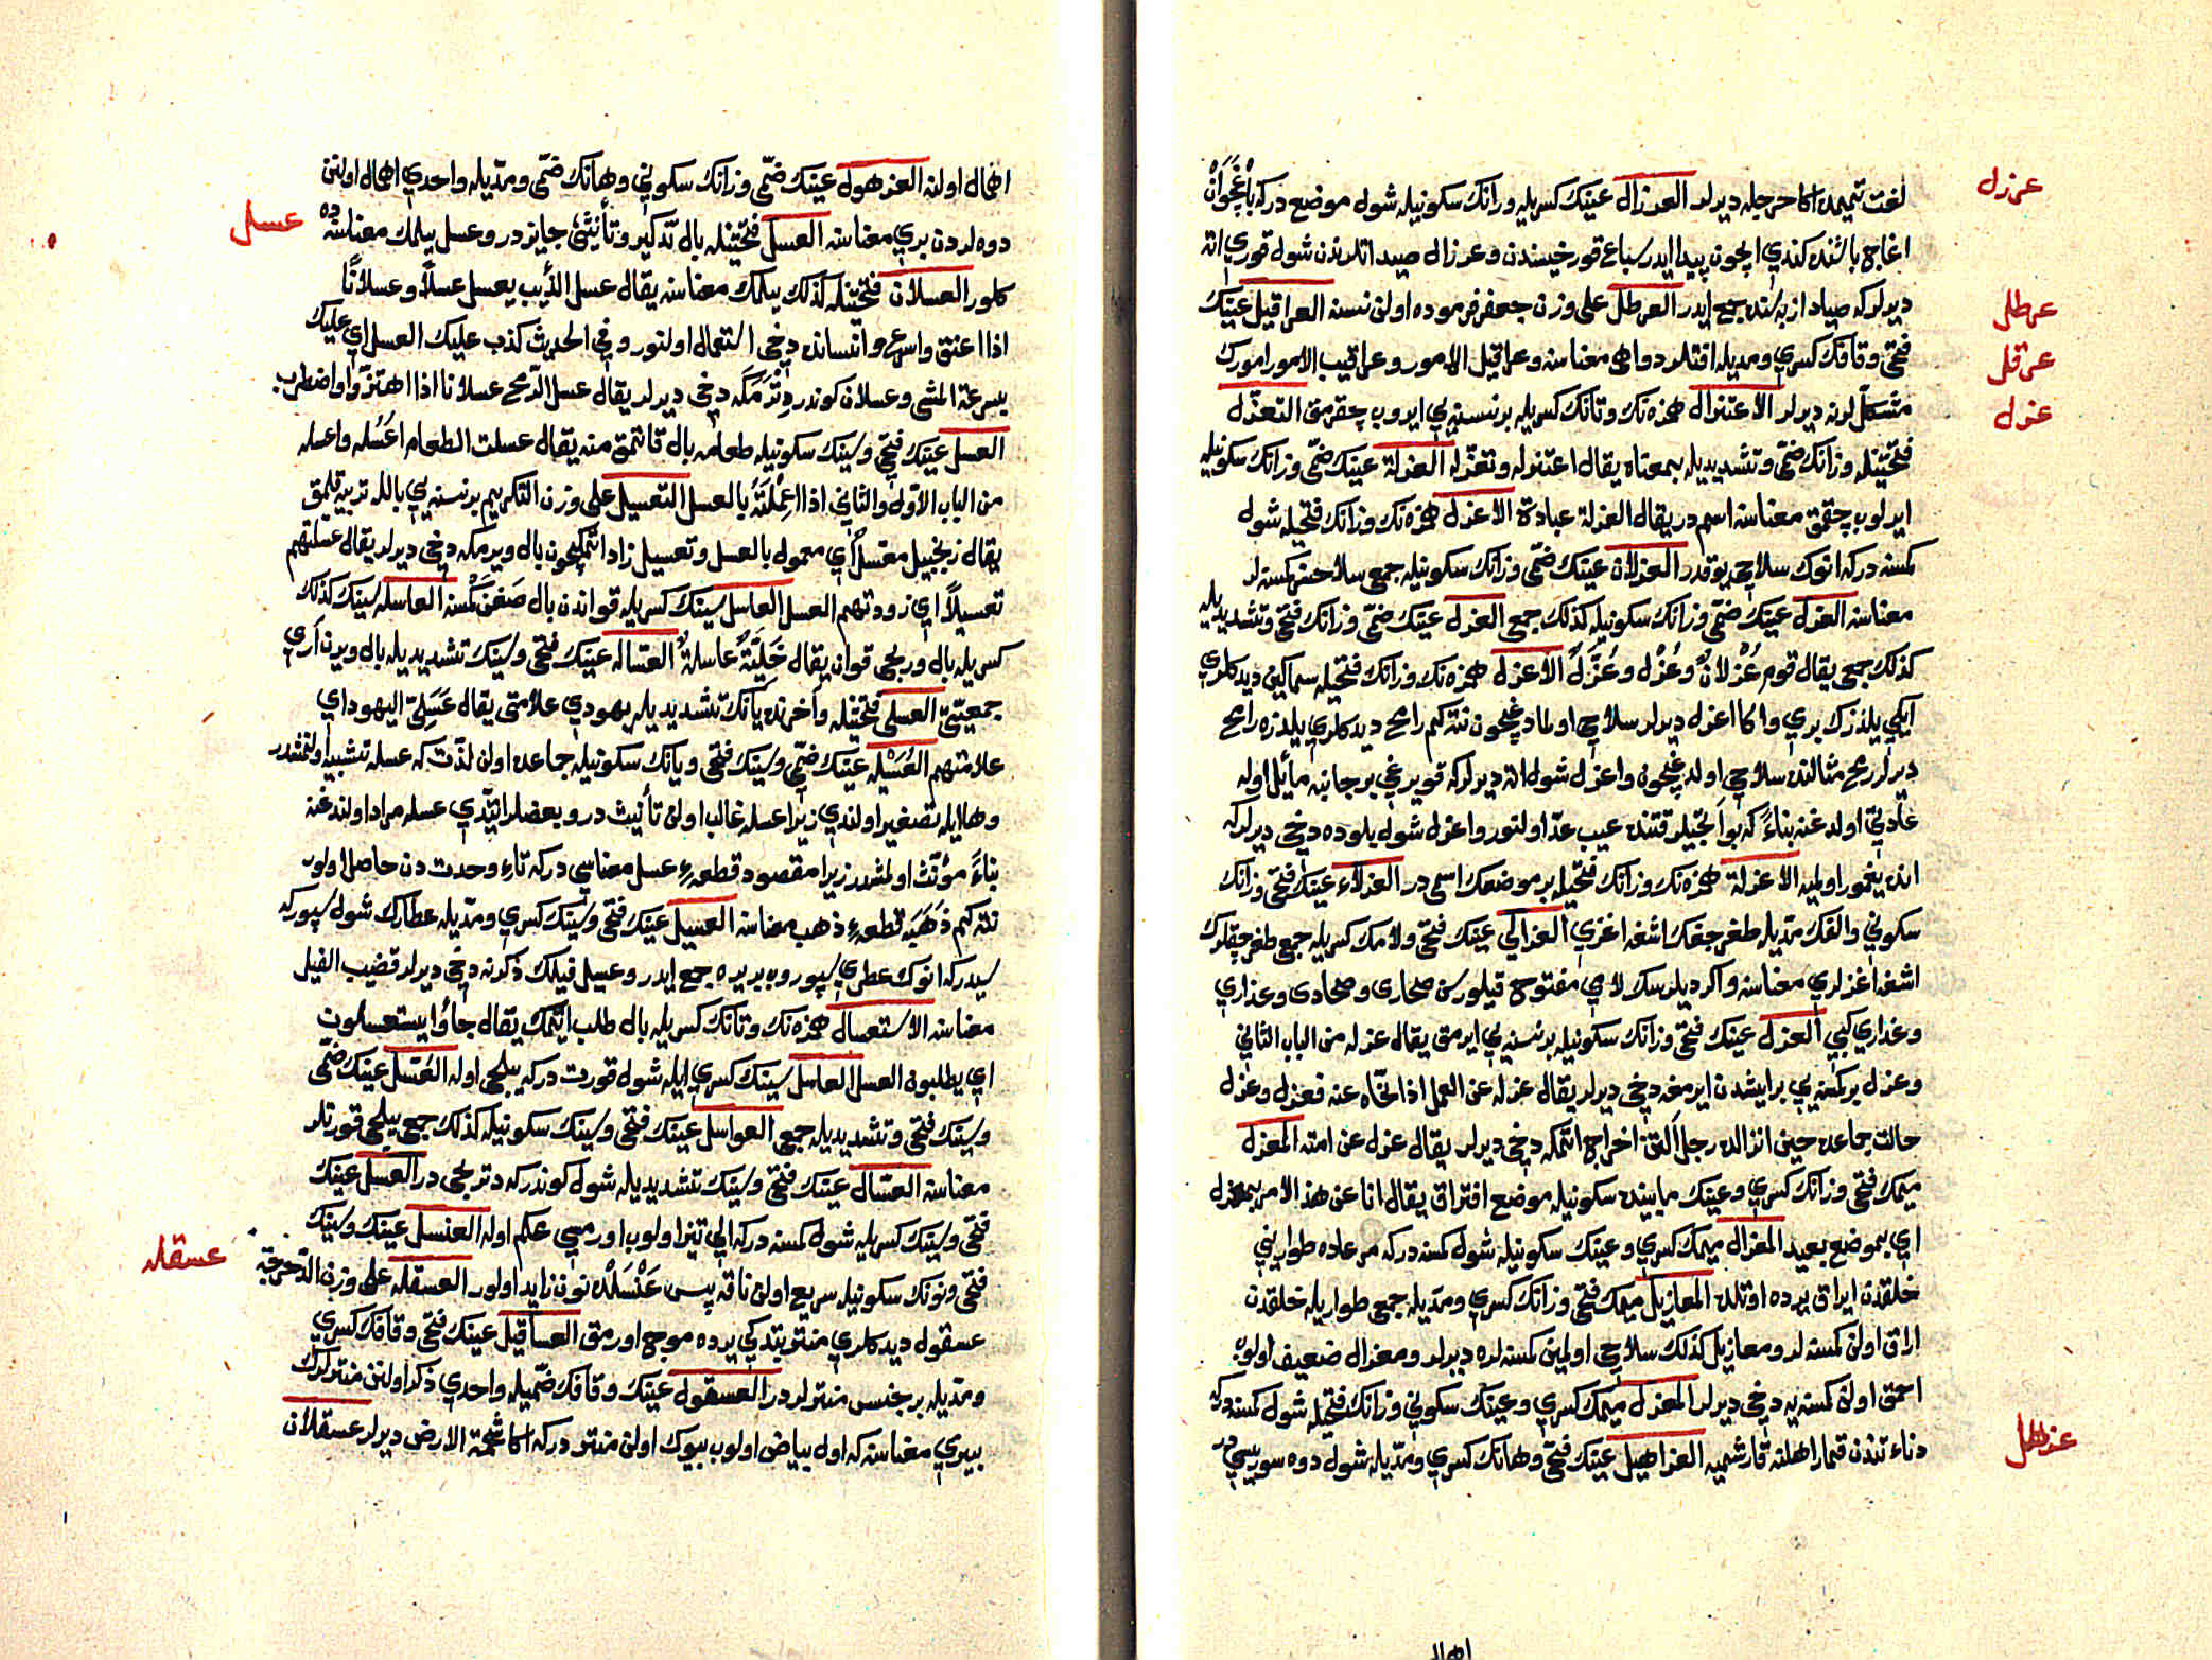 لغت تميمده اكا حرجله ديرلر العرزال عينك كسريله و رانك سكونيله شول موضع دركه باغجوان
عرزل
اغاج باشنده كندي ايچون پيدا ايدر سباع قورخيسندن و عرزال صيد اتلرندن شول قوري اته
ديرلر كه صياد از به كنده جمع ايدر العرطل على وزن جعفر فرموده اولن نسنه العراقيل عينك
عرطل
فتحى و قافك كسري و مديله افتلر دواهى معناسنه و عراقيل الامور و عراقيب الامور امورك
عرقل
مشكللرنه ديرلر الاعتزال همزه نك و تانك كسريله بر نسنه يي ايروب چقرمق التعزّل
عزل
فتحتينله و زانك ضمّى و تشديديله بمعناه يقال اعتزله و تعزّله العزلة عينك ضمّى و زانك سكونيله
ايرلوب چقمق معناسنه اسمدر يقال العزلة عبادة الاعزل همزه نك و زانك فتحيله شول
كمسنه دركه انوك سلاحى يوقدر العزلان عينك ضمّى و زانك سكونيله جمعى سلاحسز كمسنه لر
معناسنه العزل عينك ضمّى و زانك سكونيله كذلك جمعى العزل عينك ضمّى و زانك فتحى و تشديديله
كذلك جمعى يقال قوم عُزْلانٌ و عُزْل و عُزَّل الاعزل همزه نك و زانك فتحيله سماكين ديدكلري
ايكي يلدزك بري و اكا اعزل ديرلر سلاحى اولمادوغيچون نته كم رامح ديدكلري يلدزه رامح
ديرلر رمح مثالنده سلاحى اولدوغيچون و اعزل شول اته ديرلركه قويرغى بر جانبه مائل اوله
عادتى اولدغنه بناءً كه بو انجيلر قتنده عيب عدّ اولنور و اعزل شول بلوده دخى ديرلركه
انده يغمور اولميه الاعزلة همزه نك و زانك فتحيله بر موضعك اسمى در العزلاء عينك فتحى و زانك
سكوني و الفك مديله طغرجقك اشغه اغزي العزالي عينك فتحى و لامك كسريله جمعى طغرجقلرك
اشغه اغزلري معناسنه و اكر ديلرسك لامى مفتوح قيلورسن صحارى و صحاري و عذارى
و عذاري كبي العزل عينك فتحى و زانك سكونيله بر نسنه يي ايرمق يقال عزله من الباب الثاني
و عزل بر كمسنه يي بر ايشدن ايرمغه دخى ديرلر يقال عزله عن العمل اذا نحّاه عنه فعزل و عزل
حالت جماعده حين انزالده رجل التن اخراج اتمكه دخى ديرلر يقال عزل عن امته المعزل
ميمك فتحى و زانك كسري و عينك مابينده سكونيله موضع افتراق يقال انا عن هذا الامر بمعزل
اي بموضع بعيد المعزال ميمك كسري و عينك سكونيله شول كمسنه دركه مرعاده طواريني
خلقدن ايراق يرده اوتلده المعازيل ميمك فتحى و زانك كسري و مديله جمعى طواريله خلقدن
اراق اولن كمسنه لر و معازيل كذلك سلاحى اولمين كمسنه لره ديرلر و معزال ضعيف اولوب
احمق اولن كمسنه يه دخى ديرلر المعزل ميمك كسري و عينك سكوني و زانك فتحيله شول كمسنه دركه
دناءتندن قمار اهلنه قارشميه العزاهيل عينك فتحى و هانك كسري و مديله شول دوه سوريسيدر
عزهل
اهمال
اهمال اولنه العزهول عينك ضمّى و زانك سكوني و هانك ضمّى و مديله واحدي اهمال اولنن
دوه لردن بري معناسنه العسل فتحتينله بال تذكير و تأنيثى جايزدر و عسل ييلمك معناسنه ده
عسل
كلور العسلان فتحتينله كذلك ييلمك معناسنه يقال عسل الذئب يعسل عسلاً و عسلاناً
اذا اعنق و اسرع و انسانده دخى استعمال اولنور و في الحديث كذب عليك العسل اي عليك
بسرعة المشى و عسلان كوندر دترمكه دخى ديرلر يقال عسل الرمح عسلانا اذا اهتزّ و اضطرب
العسل عينك فتحى و سينك سكونيله طعامه بال قاتمق منه يقال عسلت الطعام اعسُله و اعسله
من الباب الاول و الثاني اذا عملته بالعسل التعسيل على وزن التكريم بر نسنه يي بالله تربيه قلمق
يقال زنجبيل معسّل اي معمول بالعسل و تعسيل زاد اتمكيچون بال ويرمكه دخى ديرلر يقال عسّلتهم
تعسيلاً اي زودتهم العسل العاسل سينك كسريله قواندن بال صغن كمسنه العاسله سينك كذلك
كسريله بال وريجى قوان يقال خليّة عاسلة العسّاله عينك فتحى و سينك تشديديله بال ويرن اري
جمعيتى العسلى فتحتينله و آخرنده يانك تشديديله يهودي علامتى يقال عَسَلىّ اليهود اي
علامتهم العُسَيْله عينك ضمّى و سينك فتحى و يانك سكونيله جماعده اولن لذّت كه عسله تشبيه اولنمشدر
و هاايله تصغير اولندي زيرا عسله غالب اولن تأنيث در و بعضلر ايتدي عسله مراد اولندغنه
بناءً مؤنث اولمشدر زيرا مقصود قطعهٔ عسل معناسي دركه تاء وحدت دن حاصل اولور
نته كم ذهبه قطعهٔ ذهب معناسنه العسيل عينك فتحى و سينك كسري و مديله عطارك شول سپوركه
سيدركه انوك عطري سپوروب بر يره جمع ايدر و عسيل فيلك ذكرنه دخى ديرلر قضيب الفيل
معناسنه الاستعسال همزه نك و تانك كسريله بال طلب اتمك يقال جاؤا يستعسلون
اي يطلبون العسل العاسل سينك كسري ايله شول قورت دركه ييلجى اوله العُسّل عينك ضمّى
و سينك فتحى و تشديديله جمعى العواسل عينك فتحى و سينك سكونيله كذلك جمعى ييلجى قورتلر
معناسنه العسّال عينك فتحى و سينك تشديديله شول كوندركه دتريجى در العسل عينك
فتحى و سينك كسريله شول كمسنه دركه الي تيز اولوب اورمسي محكم اوله العنسل عينك و سينك
فتحى و نونك سكونيله سريع اولن ناقه پس عَنْسَلْده نون زايد اولور العسقله على وزن الدحرجة
عسقله
عسقول ديدكلري منتر بتدكي يرده موج اورمق العساقيل عينك فتحى و قافك كسري
و مديله بر جنس منترلردر العسقول عينك و قافك ضمّيله واحدي ذكر اولنن منترلرك
بيري معناسنه كه اول بياض اولوب بيوك اولن منتر دركه اكا شحمة الارض ديرلر عسقلان